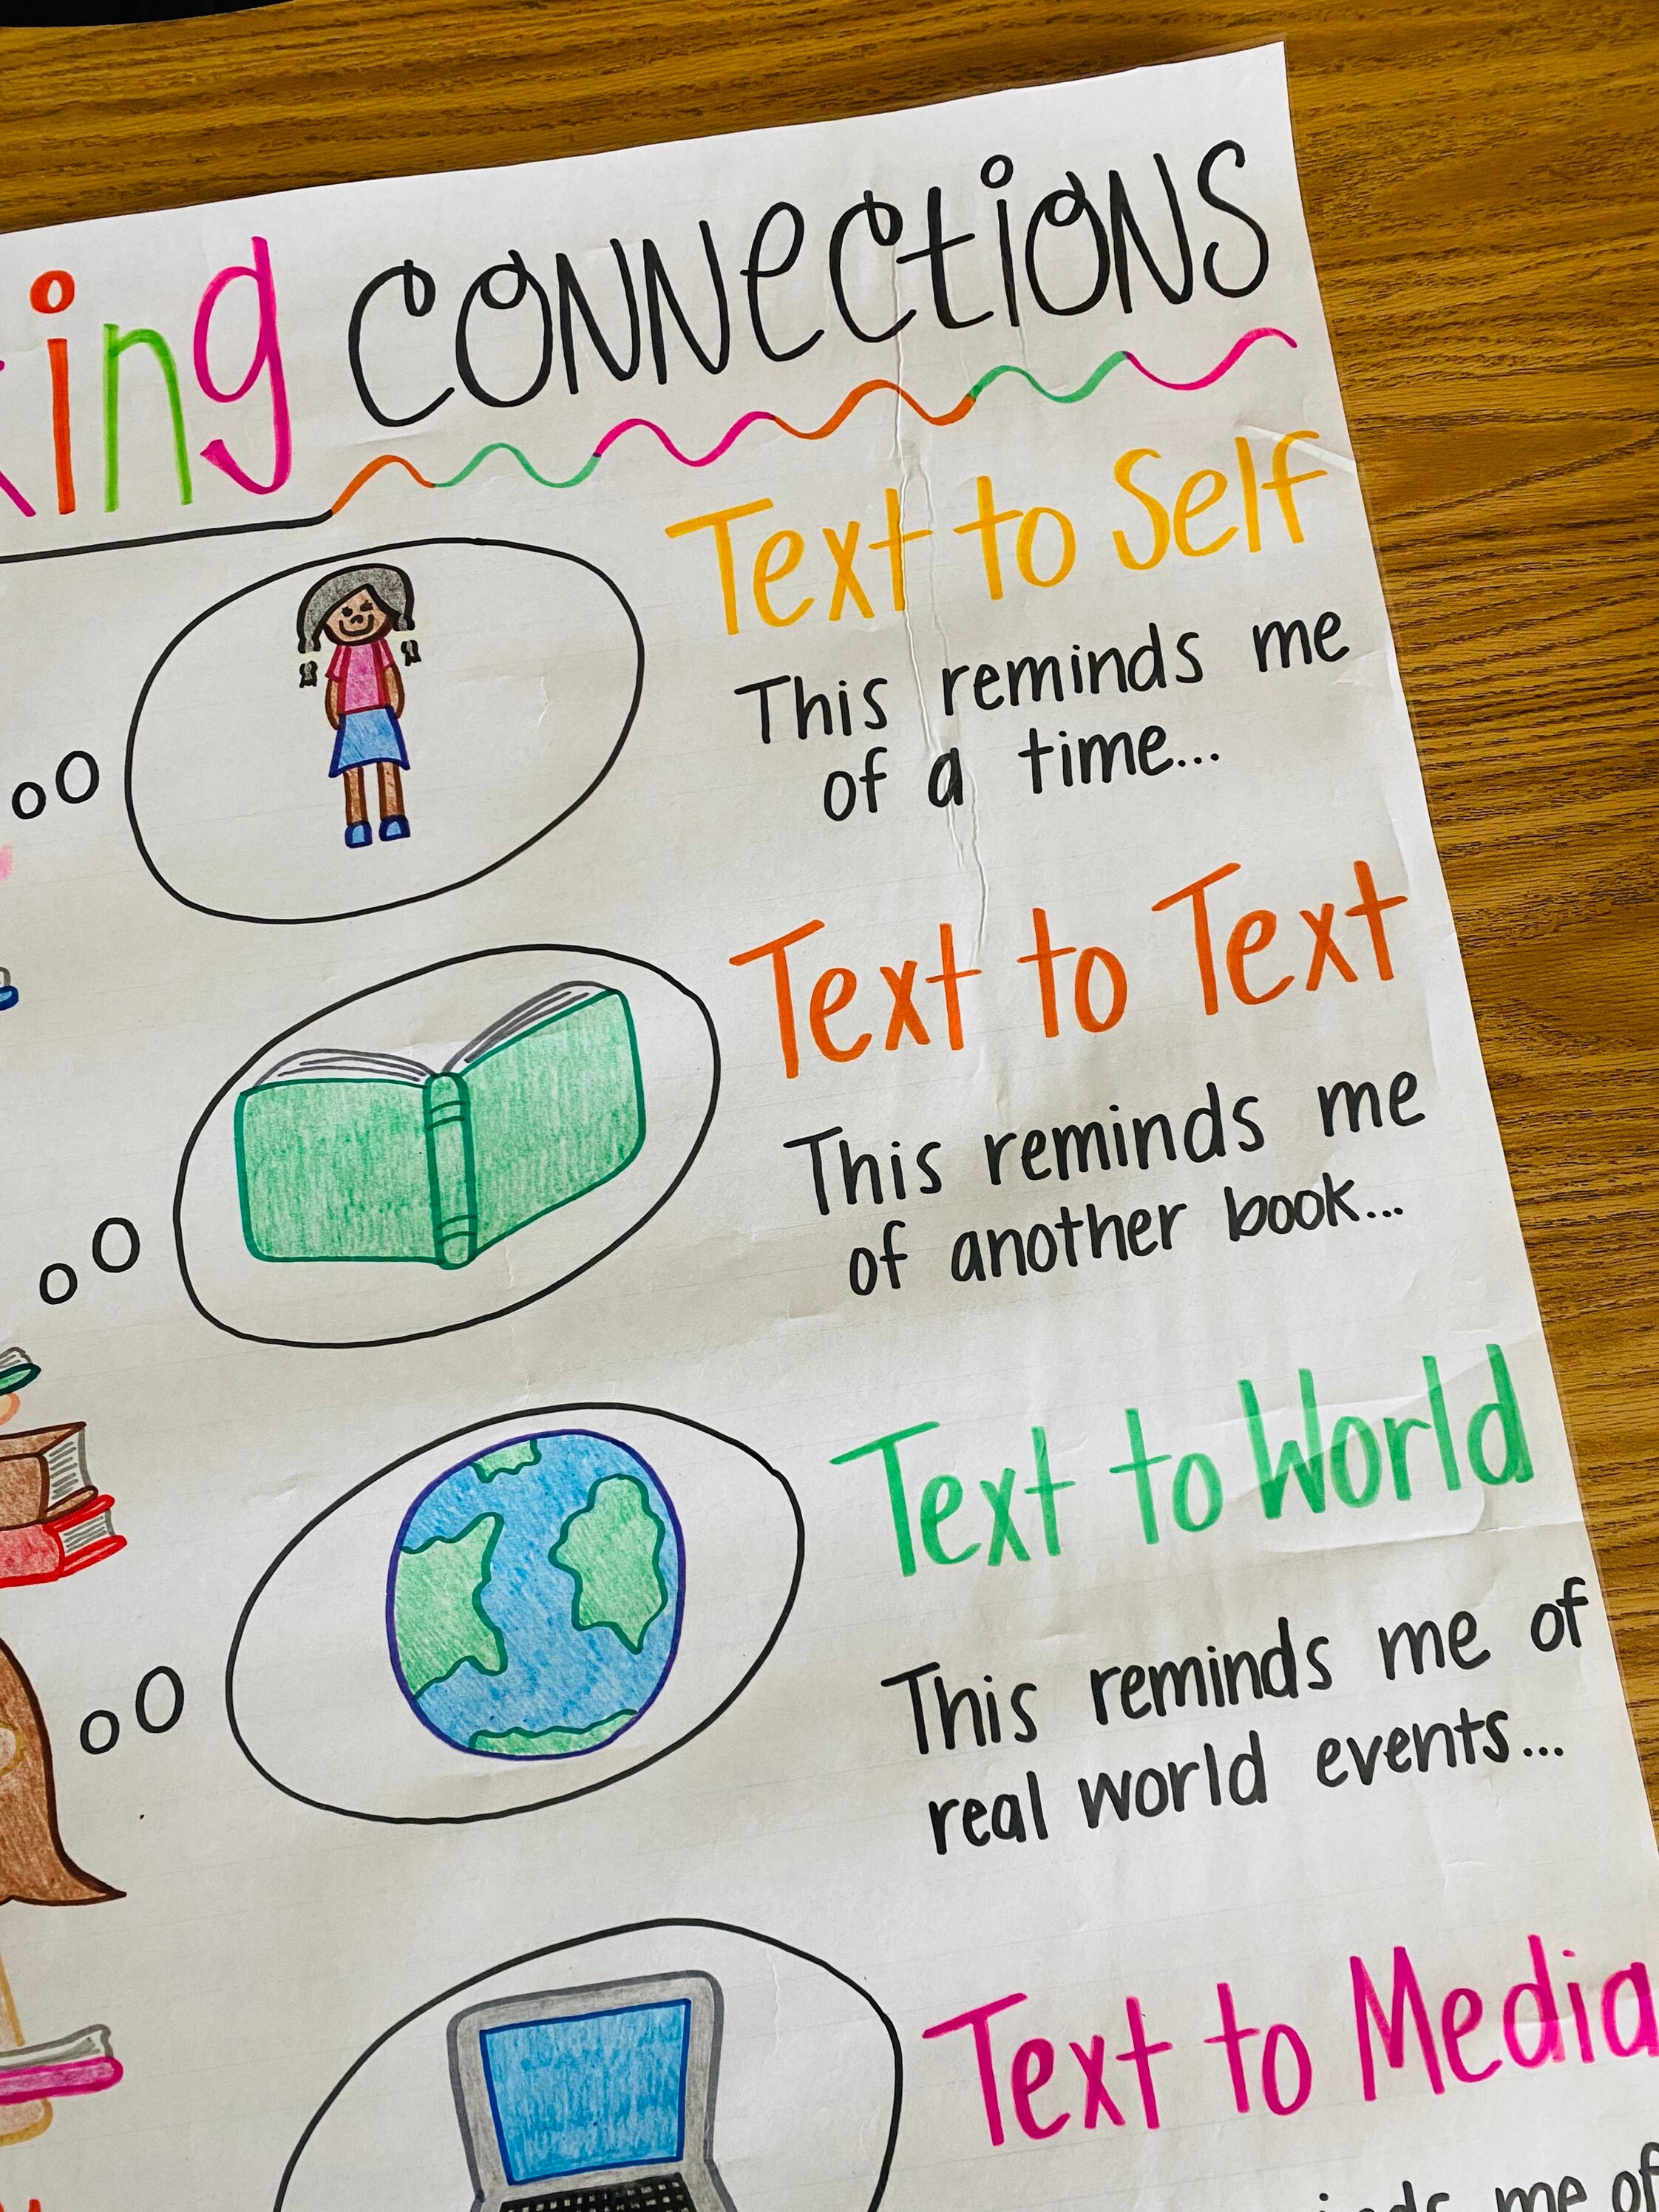 king connections
Text to Self
This reminds me
of a time...
Text to Text
This reminds me
of another book...
Text to World
This reminds me of
real world events...
Text to Media
me of